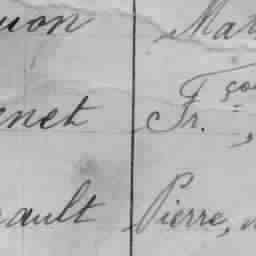 uon Mar
enet Fr. çoi
eault Pierre,